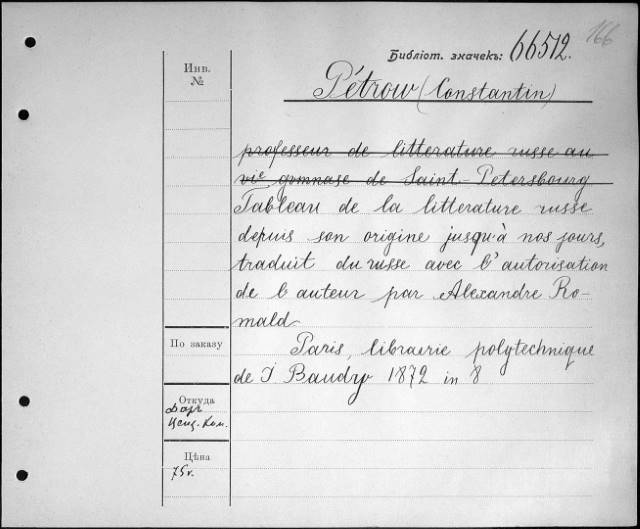 166
Библіот. значекъ: 66512.
Pétrow (Constantin)
professeur de litterature russe au
vie gymnase de Saint-Petersbourg
Tableau de la litterature russe
depuis son origine jusqu'à nos jours,
traduit du russe avec l'autorisation
de l auteur par Alexandre Ro-
mald
Paris, librairie polytechnique
de J Baudry 1872 in 8
Инв.
№
По заказу
Откуда
Даръ
Ценз. Ком.
Цѣна
75 г.